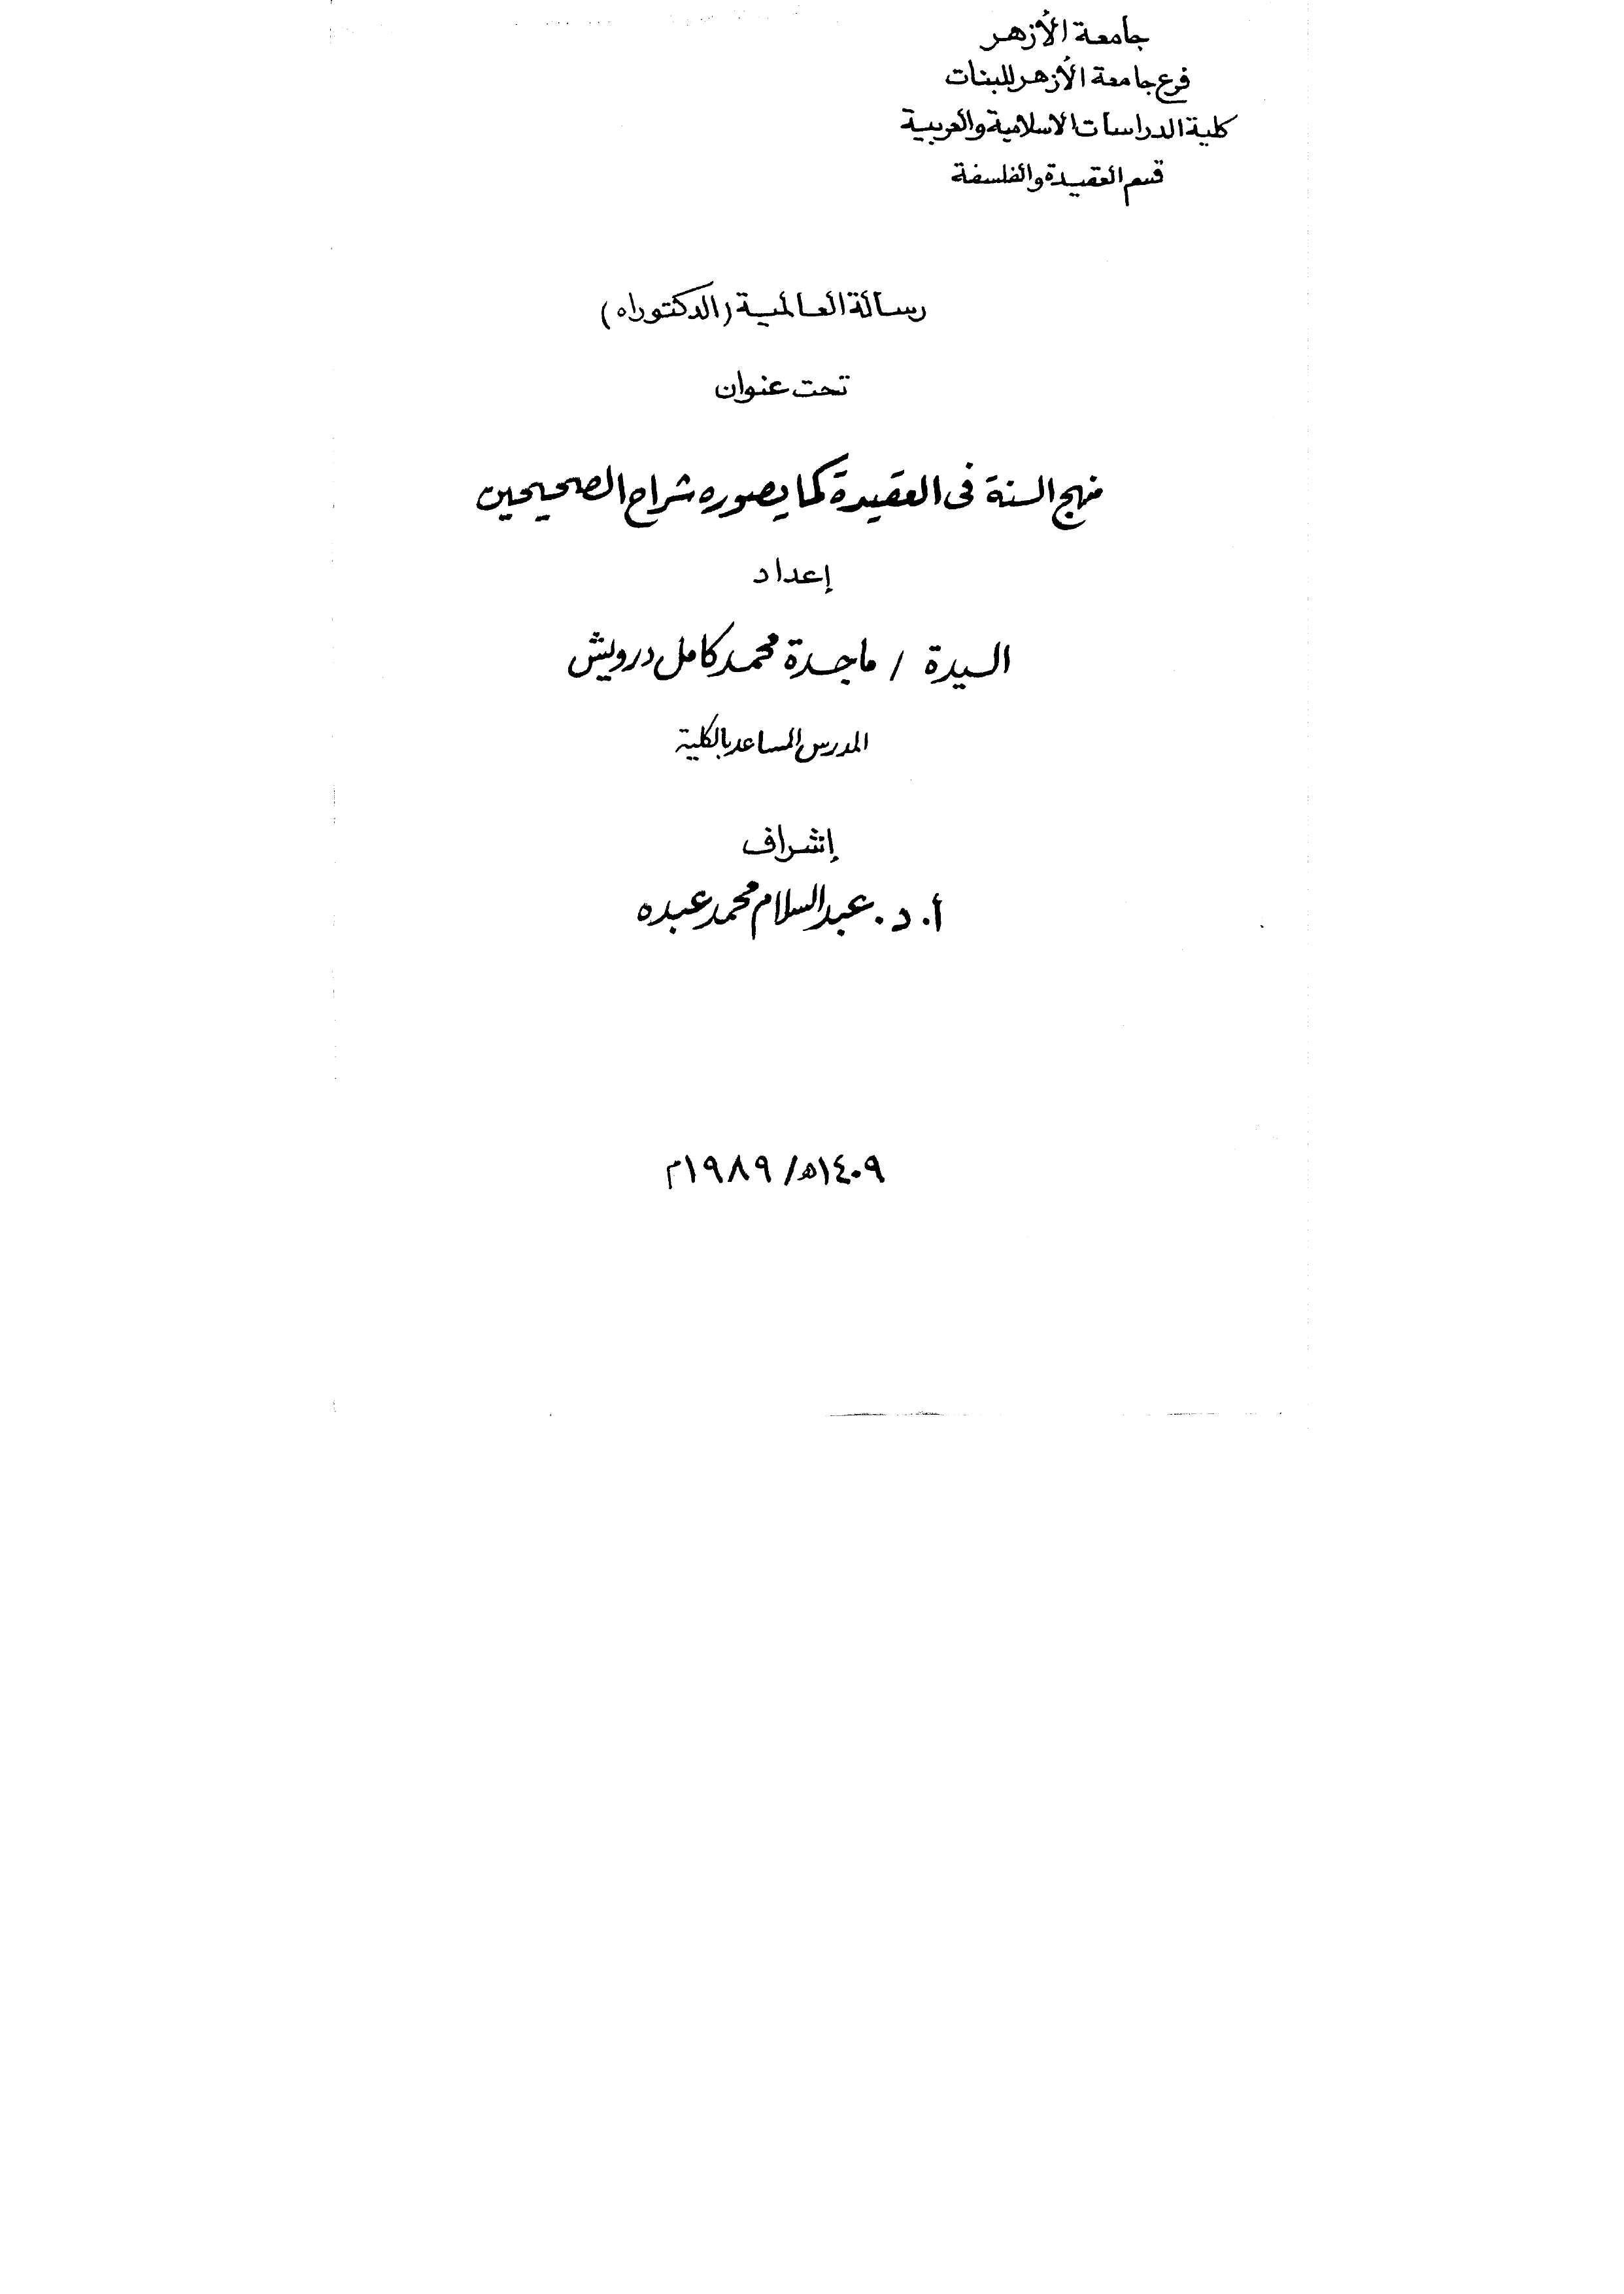 جامعة الأزهر
فرع جامعة الأزهر للبنات
كلية الدراسات الاسلامية والعربية
قسم العقيدة والفلسفة
رسالة العالمية (الدكتوراه)
تحت عنوان
منهج السنة فى العقيدة كما يصوره شراح الصحيحين
إعداد
السيدة / ماجدة محمد كامل درويش
المدرس المساعد بالكلية
إشراف
أ. د. عبد السلام محمد عبده
١٤٠٩ه/ ١٩٨٩م